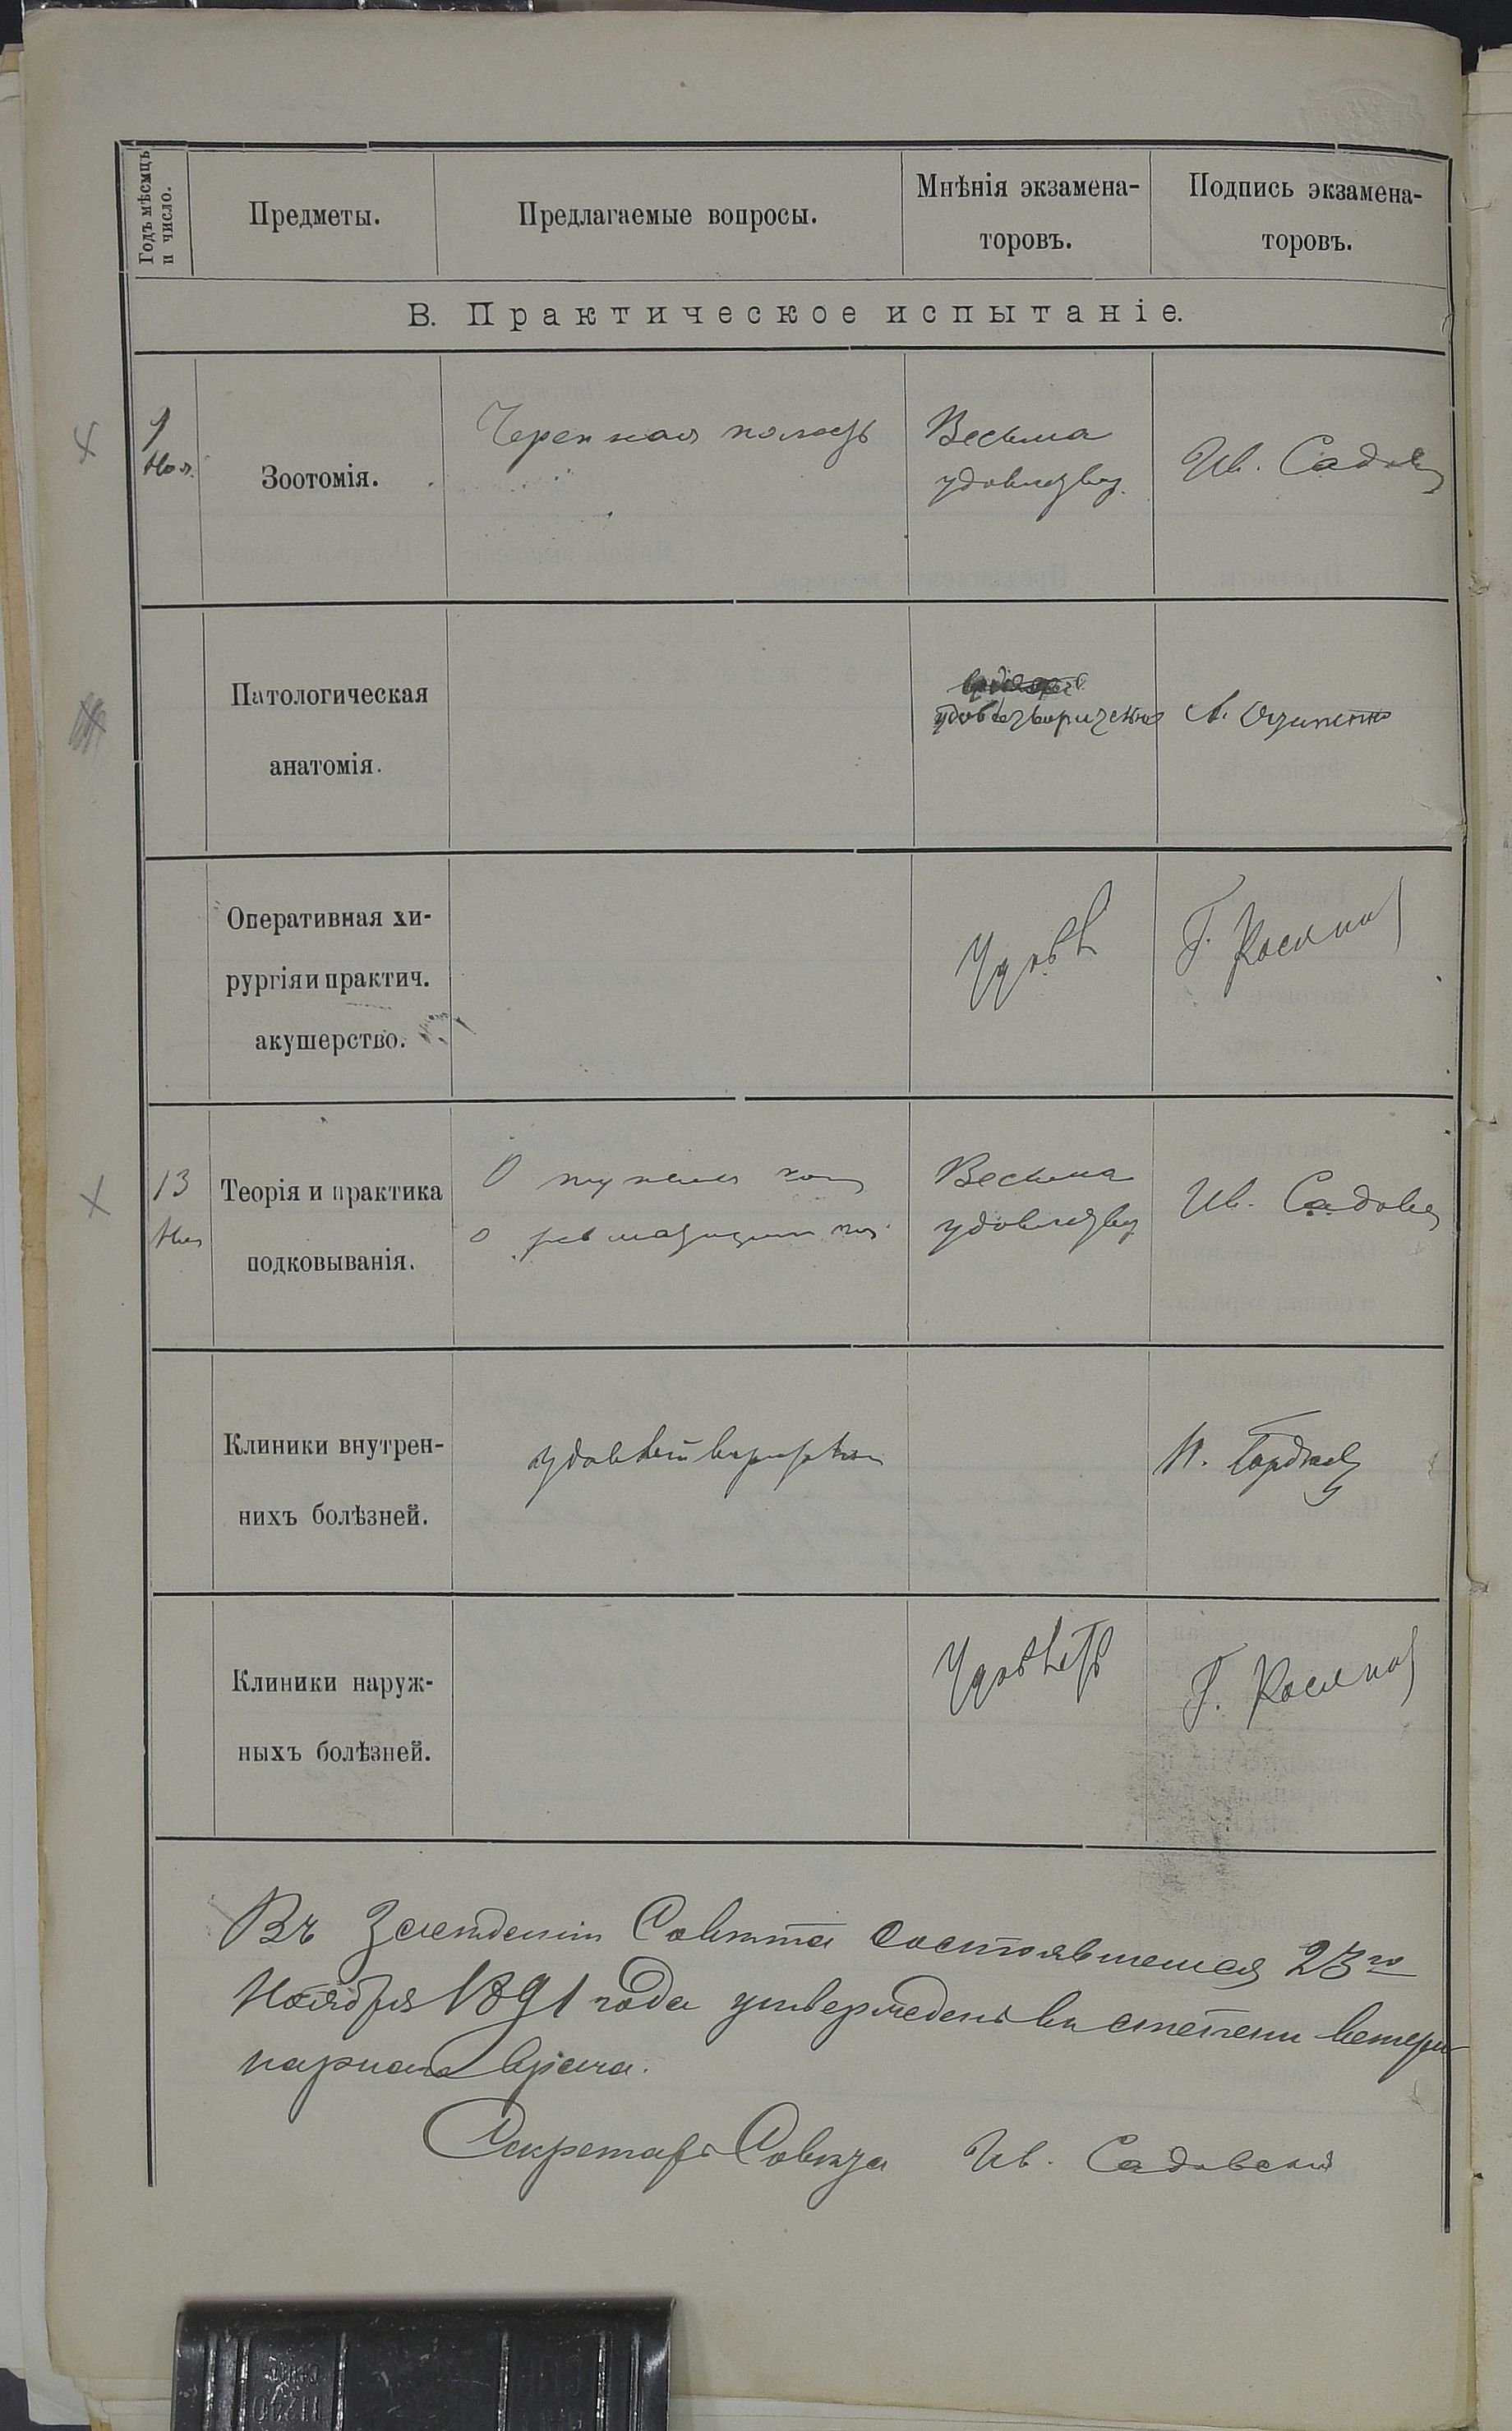 Годъ мѣсяцъ
и число.
Предметы.
Предлагаемые вопросы.
Мнѣнія экзамена-
торовъ.
Подпись экзамена-
торовъ.
В. Практическое испытаніе.
1
Ноя.
Зоотомія.
Черепная полость
Весьма
удовлетв.
Ив. Садовс
Патологическая
анатомія.
удовлетворительно
А.
Оперативная хи-
рургія и практич.
акушерство.
Удовл
Г.
13
Ноя
Теорія и практика
подковыванія.
О
о
Весьма
удовлетв
Ив. Садовс
Клиники внутрен-
нихъ болѣзней.
удовлетворительно
Клиники наруж-
ныхъ болѣзней.
Удовлетв
Г.
Въ Засѣданіи Совѣта состоявшемся 23го
Ноября 1891 года утвержденъ въ степени ветери
нарнаго врача.
Секретарь Совѣта Ив. Садовскій